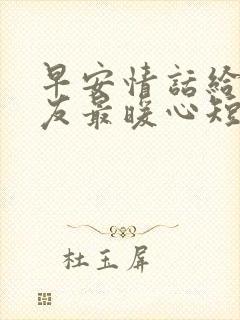 早安情話給
友最暖心短
杜玉屏